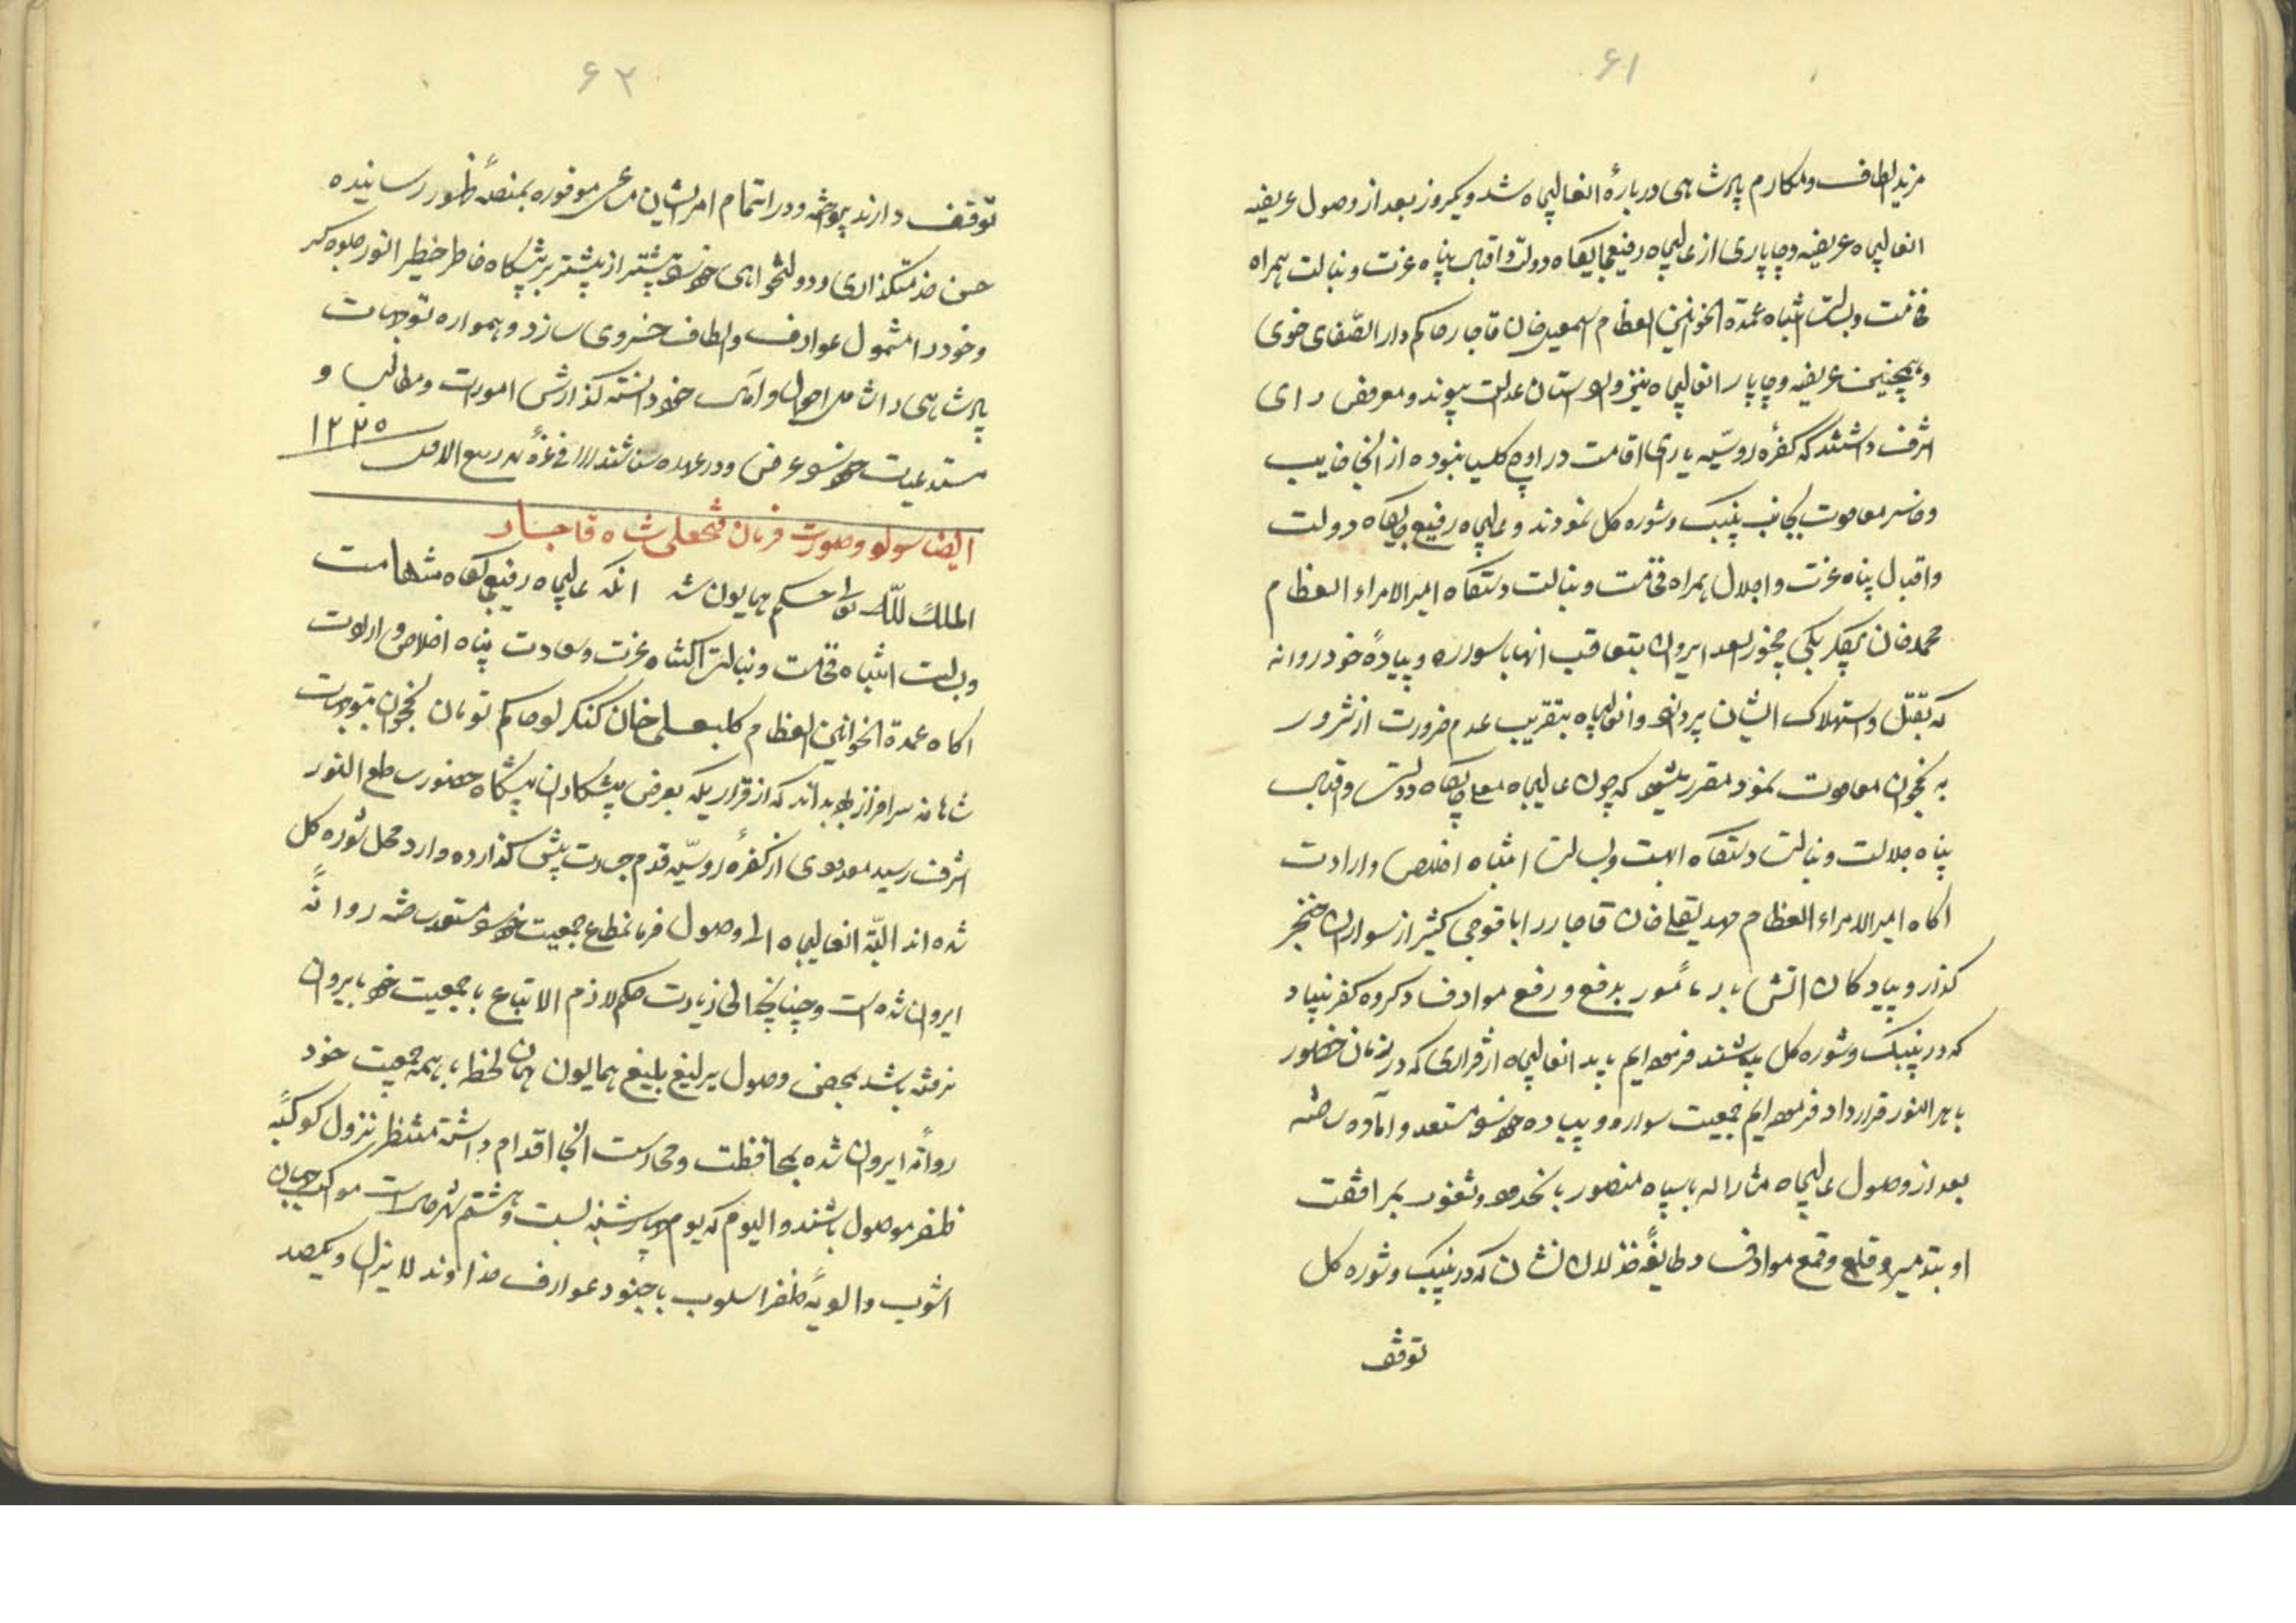 ۶۱
مزید الطاف و مکارم پادشاهی دربارهٔ انعالیجاه شد و یکروز بعد از وصول عریضه
انعالیجاه عریضه و چاپاری از عالیجاه رفیعجایگاه دولت و اقبال پناه عزت و نبالت همراه
فخامت و بسالت انتباه عمدة الخوانین العظام اسمعیل خان قاجار حاکم دار الصفای خوی
و همچنین عریضه و چاپار انعالیجاه نیز وارد استان عدالت پیوند و معروض رای
اشرف داشتند که کفرهٔ روسیّه یارای اقامت در اوچ کلیسا ننموده از انجا خایب
و خاسر معاودت بجانب پنبک و شوره کل نمودند و عالیجاه رفیع جایگاه دولت
و اقبال پناه عزت و اجلال همراه فخامت و نبالت دستگاه امیر الامراء العظام
محمد خان بیگلربیگی چخور سعد ایروان بتعاقب انها با سواره و پیادهٔ خود روانه
که بقتل و استهلاک ایشان پردازد و انعالیجاه بتقریب عدم ضرورت از شرور
به نخجوان معاودت نمود مقرر میشود که چون عالیجاه معلی جایگاه دولت و اقبال
پناه جلالت و نبالت دستگاه ابهت و بسالت انتباه اخلاص و ارادت
اکاه امیر الامراء العظام مهدیقلی خان قاجار را با فوجی کثیر از سواران خنجر
گذار و پیادگان اتش بار مأمور بدفع و رفع مواد فساد گروه کفر بنیاد
که در پنبک و شوره کل میباشند فرموده ایم باید انعالیجاه از قراری که در زمان حضور
باهر النور قرارداد فرموده ایم جمعیت سواره و پیاده خود را مستعد و آماده ساخته
بعد از وصول عالیجاه مشار الیه با سپاه منصور بانحدود و ثغور بمرافقت
او بتدمیر و قلع و قمع مواد فساد طایفهٔ خذلان نشان که در پنبک و شوره کل
توقف
۶۲
توقف دارند پرداخته و در اتمام امر ایشان مساعی موفوره بمنصهٔ ظهور رسانیده
حسن خدمتگذاری و دولتخواهی خود را بیشتر از پیشتر بر پیشگاه خاطر خطیر انور جلوه گر
و خود را مشمول عوادف و الطاف خسروی سازد و همواره توجهات
پادشاهی را شامل احوال و آمال خود دانسته گذارش امورات و مطالب و
مستدعیات خود را عرض و در عهده شناشند ااا فی غرهٔ شهر ربیع الاول ۱۲۲۵
ایضا سواد و صورت فرمان فتحعلی شاه قاجار
الملک للّه تعالی حکم همایون شد انکه عالیجاه رفیع جایگاه شهامت
و بسالت انتباه فخامت و نبالت اکتناه عزت و سعادت پناه اخلاص و ارادت
اکاه عمدة الخوانین العظام کلبعلی خان کنگرلو حاکم تومان نخجوان بتوجهات
شاهانه سرافراز بوده بداند که از قراریکه بعرض پیشکاران پیشگاه حضور ساطع النور
اشرف رسید معدودی از کفرهٔ روسیّه قدم جسارت پیش گذارده وارد محال شوره کل
شده اند البته انعالیجاه الی وصول فرمانمطاع جمعیت خود را مستعد ساخته روانهٔ
ایروان شده است و چنانچه الی زیارت حکم لازم الاتباع با جمعیت خود بایروان
نرفته باشد بمحض وصول یرلیغ بلیغ همایون همان لحظه با همه جمعیت خود
روانهٔ ایروان شده بمحافظت و محارست انجا اقدام داشته منتظر نزول کوکبهٔ
ظفر موصول باشند و الیوم که یوم چهارشنبه بیست و هشتم شهر حال است مواکب جهان
اشوب و الویهٔ ظفر اسلوب با جنود عوارف خداوند لا یزال و یکصد